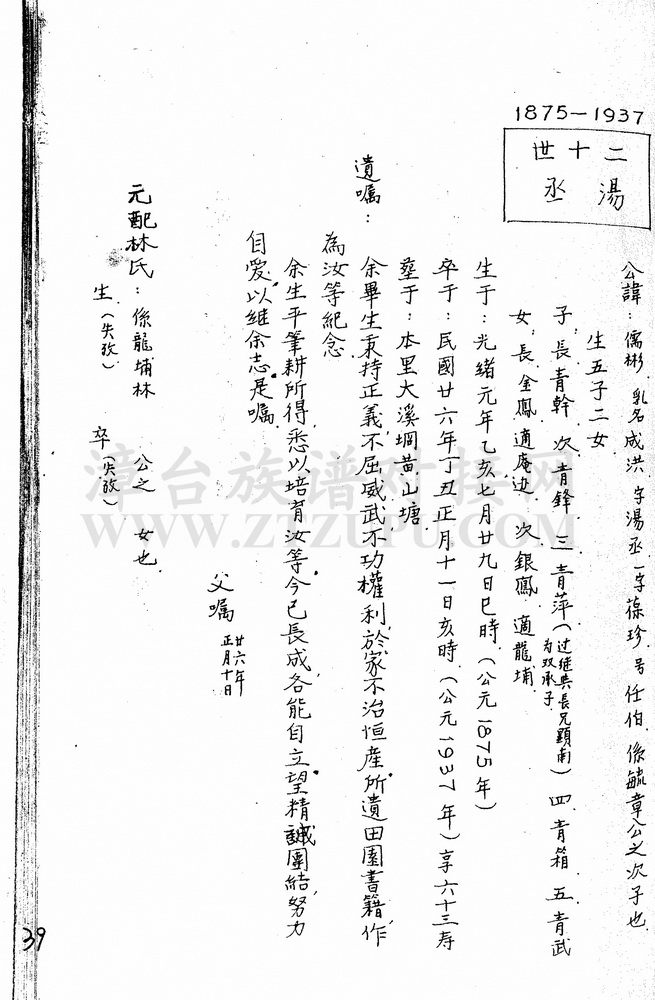 1875-1937
二十世
湯丞
公諱：儒彬．乳名成洪．字湯丞．一字葆珍．号任伯．係毓章公之次子也．
生五子二女
子：長青幹．次青鋒．三青萍（过继與長兄顕南为双承子）四青箱．五青武
女：長金鳳適庵边．次銀鳳．適龍埔．
生于：光緒元年乙亥七月廿九日巳時．（公元1875年）
卒于：民國廿六年丁丑正月十一日亥時．（公元1937年）享六十三寿
塟于：本里大溪埛黄山塘
遺嘱：
余畢生秉持正義不屈威武不功權利，於家不治恒産．所遺田園書籍，作
為汝等紀念
余生平筆耕所得，悉以培育汝等．今已長成，各能自立．望精誠團結，努力
自愛．以继余志．是嘱．
父嘱 廿六年正月十日
元配林氏：係龍埔林 公之 女也．
生（失攷） 卒（失攷）
39
漳台族谱对接网
WWW.ZTZUPU.COM